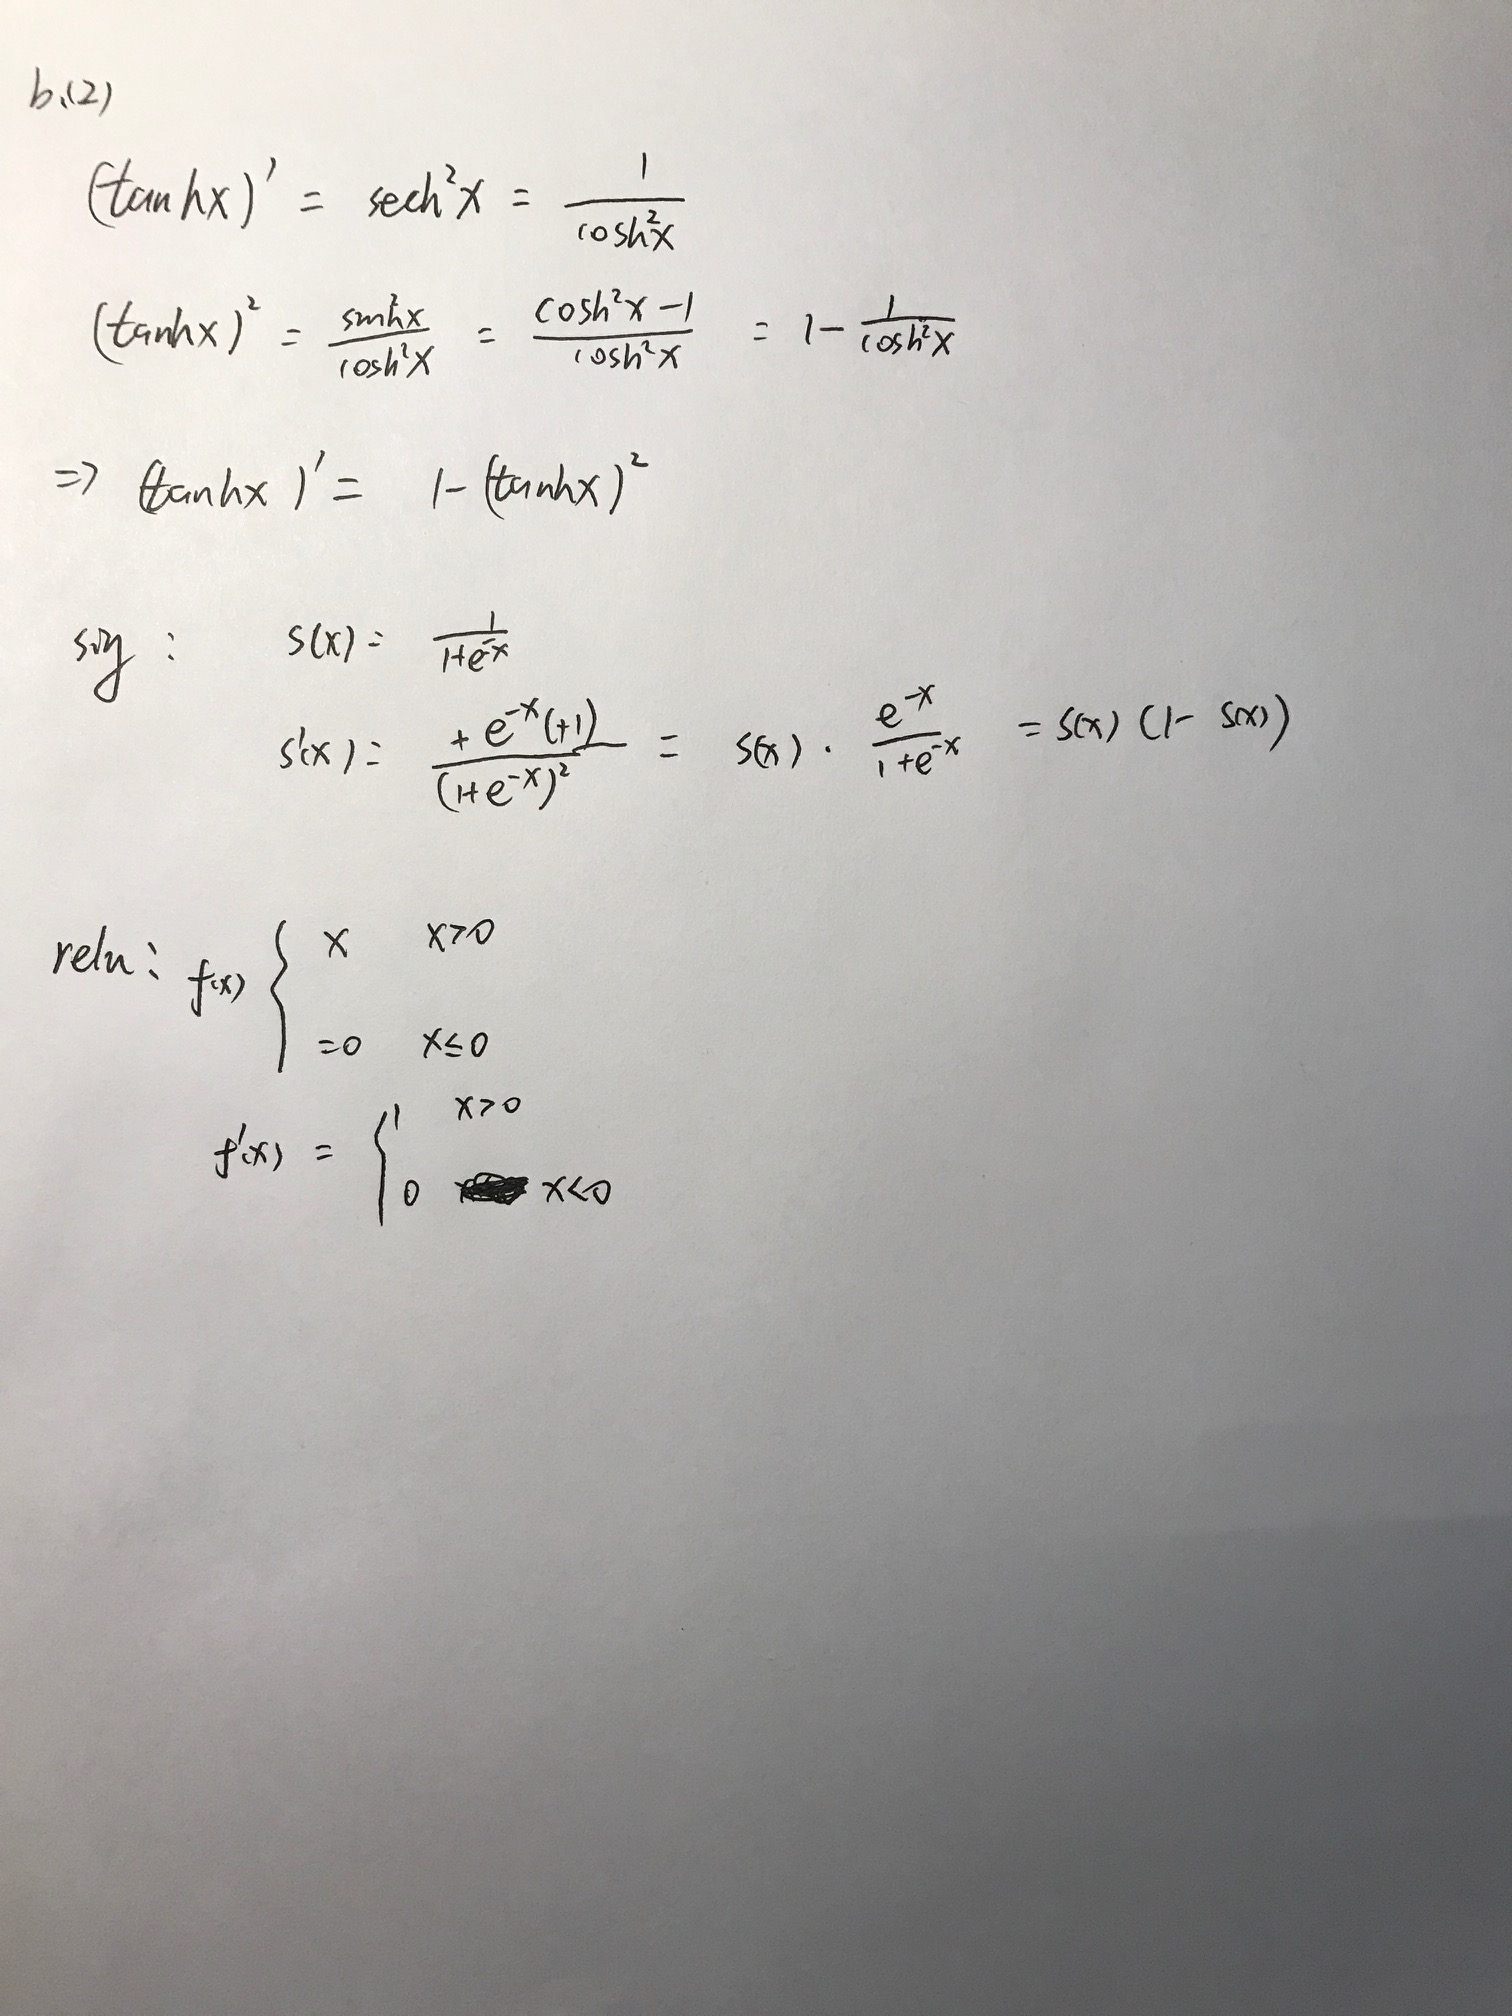 b.(2)
(tanhx)' = sech²x = 1/cosh²x
(tanhx)² = sinh²x/cosh²x = (cosh²x - 1)/cosh²x = 1 - 1/cosh²x
=> (tanhx)' = 1 - (tanhx)²
sig : s(x) = 1/(1+e^-x)
s'(x) = + e^-x(+1)/(1+e^-x)² = s(x) · e^-x/(1+e^-x) = s(x) (1- s(x))
relu: f(x) { x x>0
=0 x≤0
f'(x) = { 1 x>0
0 x<0